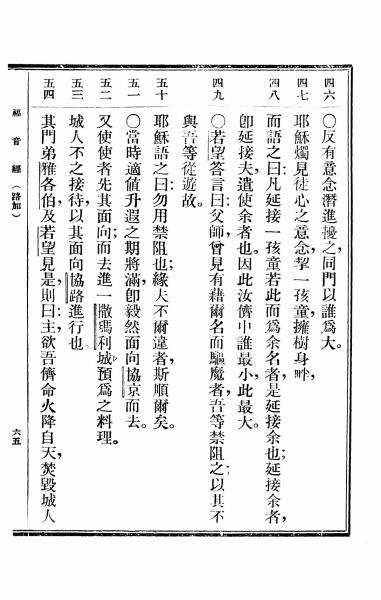 四六 〇反有意念潛進擾之同門以誰爲大。
四七 耶穌燭見徒心之意念挈一孩童擁樹身畔、
四八 而語之曰凡延接一孩童若此而爲余名者是延接余也;延接余者、
卽延接夫遣使余者也。因此汝儕中誰最小此最大。
四九 〇若望答言曰父師、曾見有藉爾名而驅魔者、吾等禁阻之;以其不
與吾等從遊故。
五十 耶穌語之曰勿用禁阻也;緣夫不爾違者、斯順爾矣。
五一 〇當時適値升遐之期將滿卽毅然面向協京而去。
五二 又使使者先其面向;而去進一撒瑪利城、預爲之料理。
五三 城人不之接待以其面向協路進行也。
五四 其門弟雅各伯及若望見是、則曰:主、欲吾儕命火降自天、焚毀城人
福音經(路加) 六五